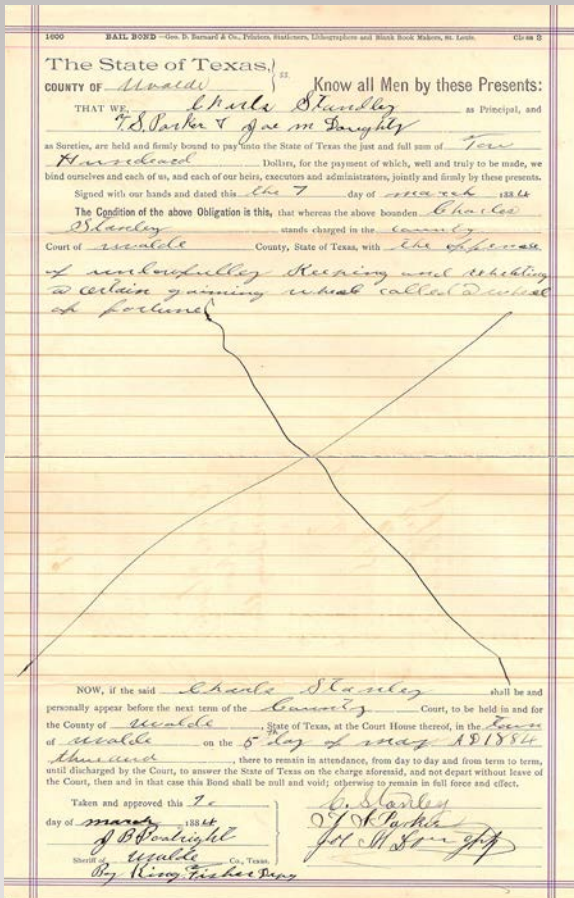 1600 BAIL BOND—Geo. D. Barnard & Co., Printers, Stationers, Lithographers and Blank Book Makers, St. Louis. Class B
The State of Texas,
COUNTY OF Uvalde ss. Know all Men by these Presents:
THAT WE, Charls Standley as Principal, and
T. S. Parker & Joe M Doughty
as Sureties, are held and firmly bound to pay unto the State of Texas the just and full sum of Tow
Hundeard Dollars, for the payment of which, well and truly to be made, we
bind ourselves and each of us, and each of our heirs, executors and administrators, jointly and firmly by these presents.
Signed with our hands and dated this the 7 day of march 1884
The Condition of the above Obligation is this, that whereas the above bounden Charles
Stanley stands charged in the county
Court of uvalde County, State of Texas, with the offense
of unlawfully Keeping and
a certain gaiming wheal called a wheel
of fortune
NOW, if the said Charls Stanley shall be and
personally appear before the next term of the County Court, to be held in and for
the County of uvalde, State of Texas, at the Court House thereof, in the Town
of uvalde on the 5th day of may A D 1884
, there to remain in attendance, from day to day and from term to term,
until discharged by the Court, to answer the State of Texas on the charge aforesaid, and not depart without leave of
the Court, then and in that case this Bond shall be null and void; otherwise to remain in full force and effect.
Taken and approved this 7 C. Stanley
day of march 1884 Parker
J B Boatright Joe M Doughty
Sheriff of uvalde Co., Texas.
By King Fisher Depy